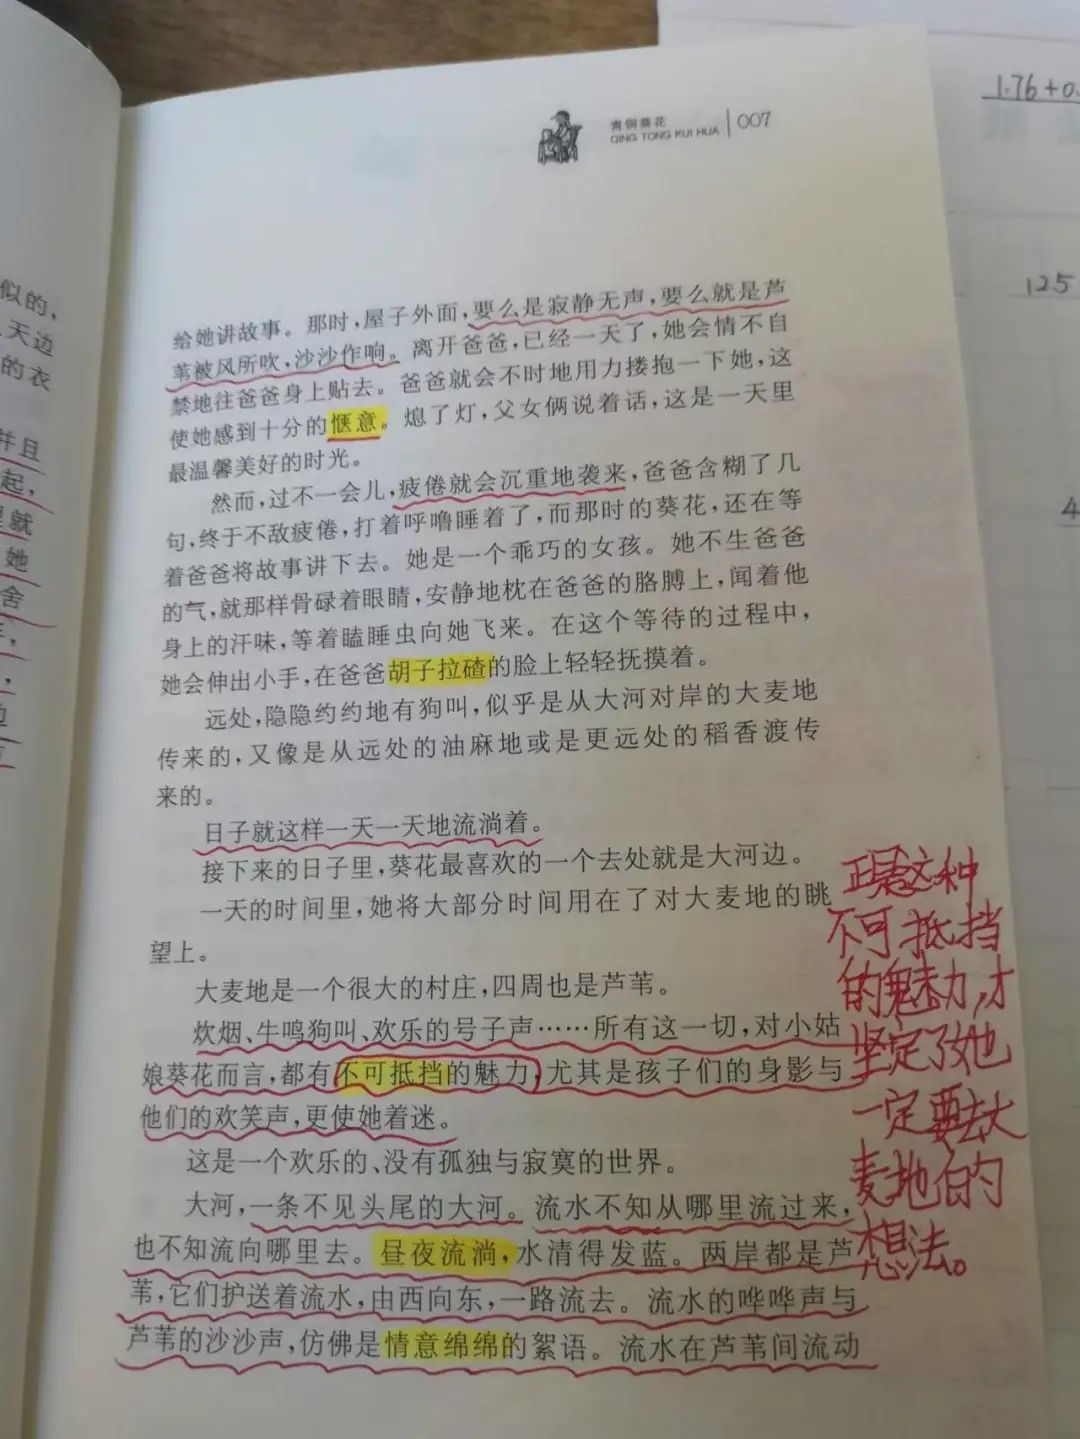 青铜葵花
QING TONG KUI HUA
007
给她讲故事。那时，屋子外面，要么是寂静无声，要么就是芦
苇被风所吹，沙沙作响。离开爸爸，已经一天了，她会情不自
禁地往爸爸身上贴去。爸爸就会不时地用力搂抱一下她，这
使她感到十分的惬意。熄了灯，父女俩说着话，这是一天里
最温馨美好的时光。
然而，过不一会儿，疲倦就会沉重地袭来，爸爸含糊了几
句，终于不敌疲倦，打着呼噜睡着了，而那时的葵花，还在等
着爸爸将故事讲下去。她是一个乖巧的女孩。她不生爸爸
的气，就那样骨碌着眼睛，安静地枕在爸爸的胳膊上，闻着他
身上的汗味，等着瞌睡虫向她飞来。在这个等待的过程中，
她会伸出小手，在爸爸胡子拉碴的脸上轻轻抚摸着。
远处，隐隐约约地有狗叫，似乎是从大河对岸的大麦地
传来的，又像是从远处的油麻地或是更远处的稻香渡传
来的。
日子就这样一天一天地流淌着。
接下来的日子里，葵花最喜欢的一个去处就是大河边。
一天的时间里，她将大部分时间用在了对大麦地的眺
望上。
大麦地是一个很大的村庄，四周也是芦苇。
炊烟、牛鸣狗叫、欢乐的号子声……所有这一切，对小姑
娘葵花而言，都有不可抵挡的魅力，尤其是孩子们的身影与
他们的欢笑声，更使她着迷。
这是一个欢乐的、没有孤独与寂寞的世界。
大河，一条不见头尾的大河。流水不知从哪里流过来，
也不知流向哪里去。昼夜流淌，水清得发蓝。两岸都是芦
苇，它们护送着流水，由西向东，一路流去。流水的哗哗声与
芦苇的沙沙声，仿佛是情意绵绵的絮语。流水在芦苇间流动
正是这种
不可抵挡
的魅力，才
坚定了她
一定要去大
麦地的
想法。
似的，
天边
的衣
并且
起，
就
她
舍
1.76+0.
125
4